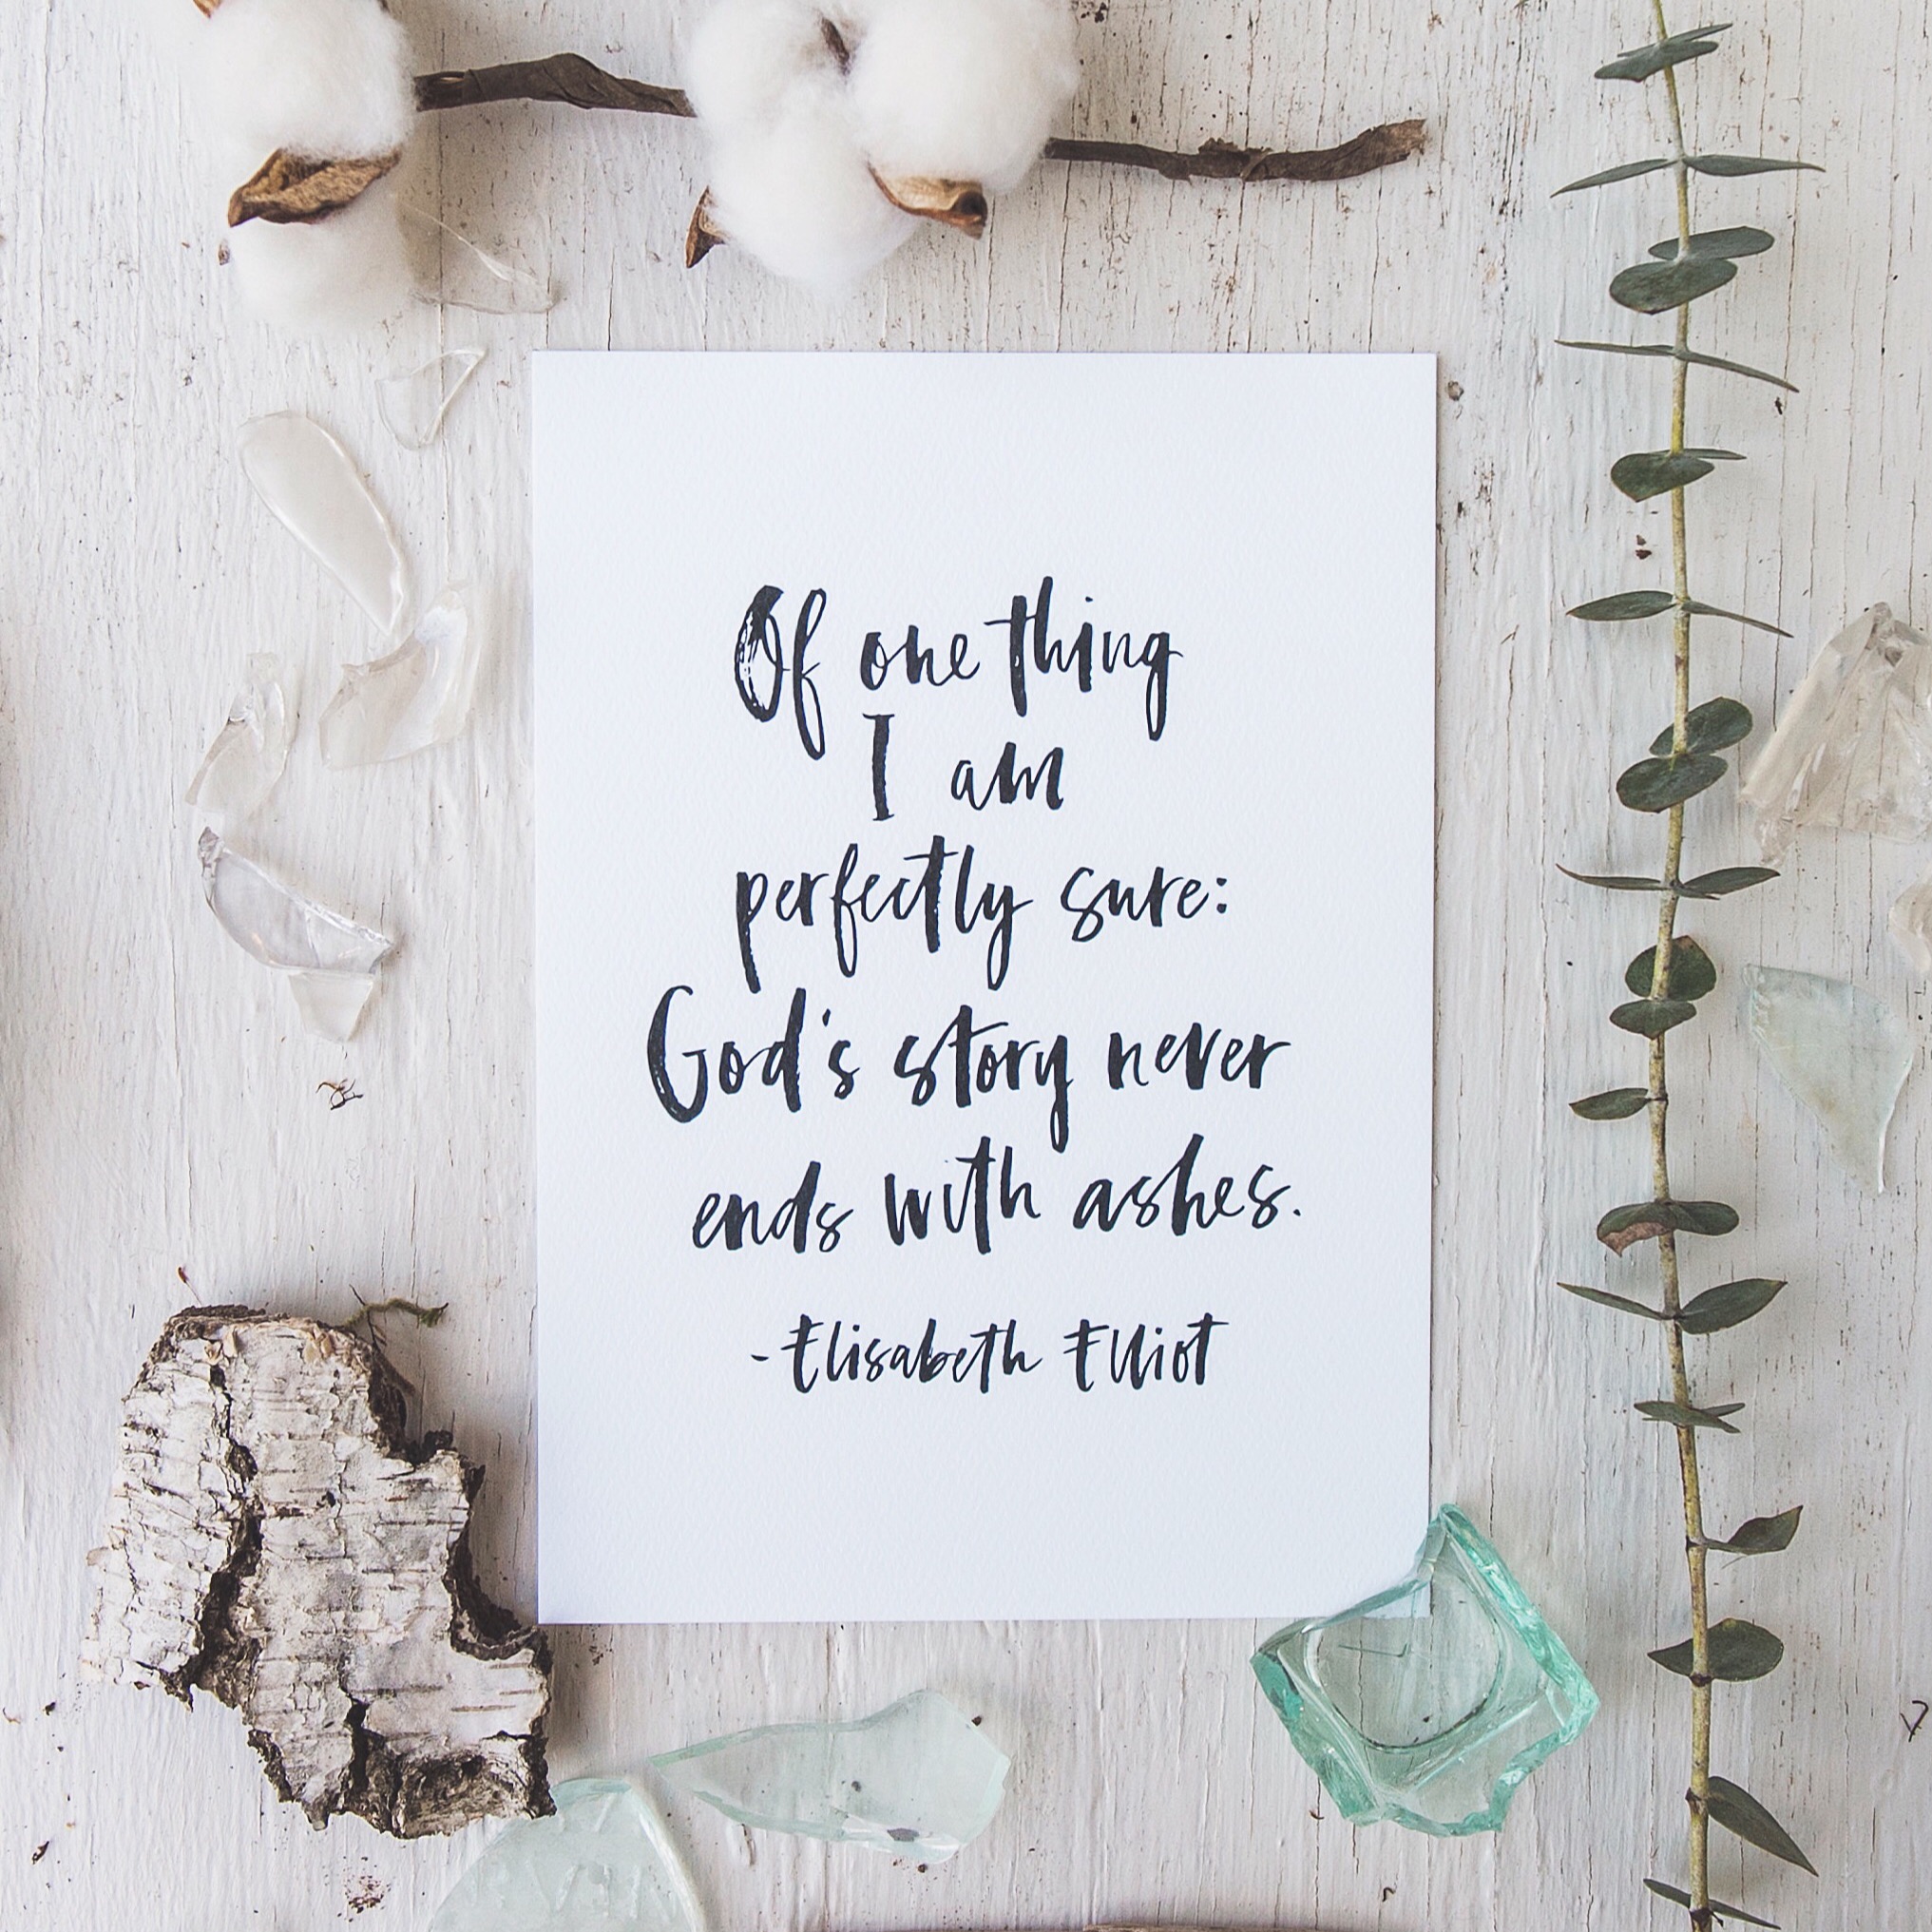 Of one thing
I am
perfectly sure:
God's story never
ends with ashes.
-Elisabeth Elliot